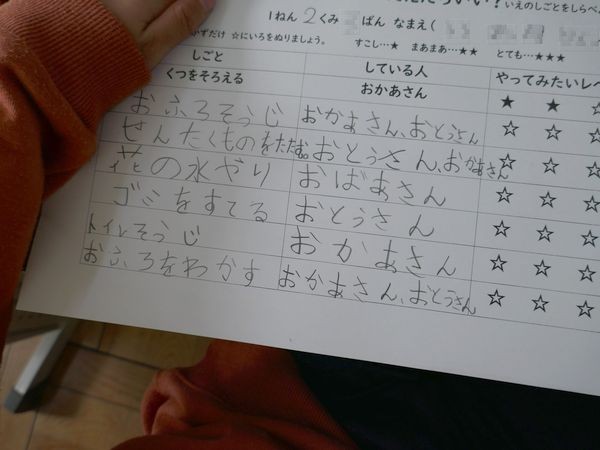 いい?いえのしごとをしらべ
1ねん 2くみ ばん なまえ(
かずだけ ☆にいろをぬりましょう。 すこし…★ まあまあ…★★ とても…★★★
しごと している人 やってみたいレベ
くつをそろえる おかあさん ★ ★ ☆
おふろそうじ おかあさん、おとうさん ☆ ☆ ☆
せんたくものをたたむ おとうさん、おかあさん ☆ ☆ ☆
花の水やり おばあさん ☆ ☆ ☆
ゴミをすてる おとうさん ☆ ☆ ☆
トイレそうじ おかあさん ☆ ☆ ☆
おふろをわかす おかあさん、おとうさん ☆ ☆ ☆